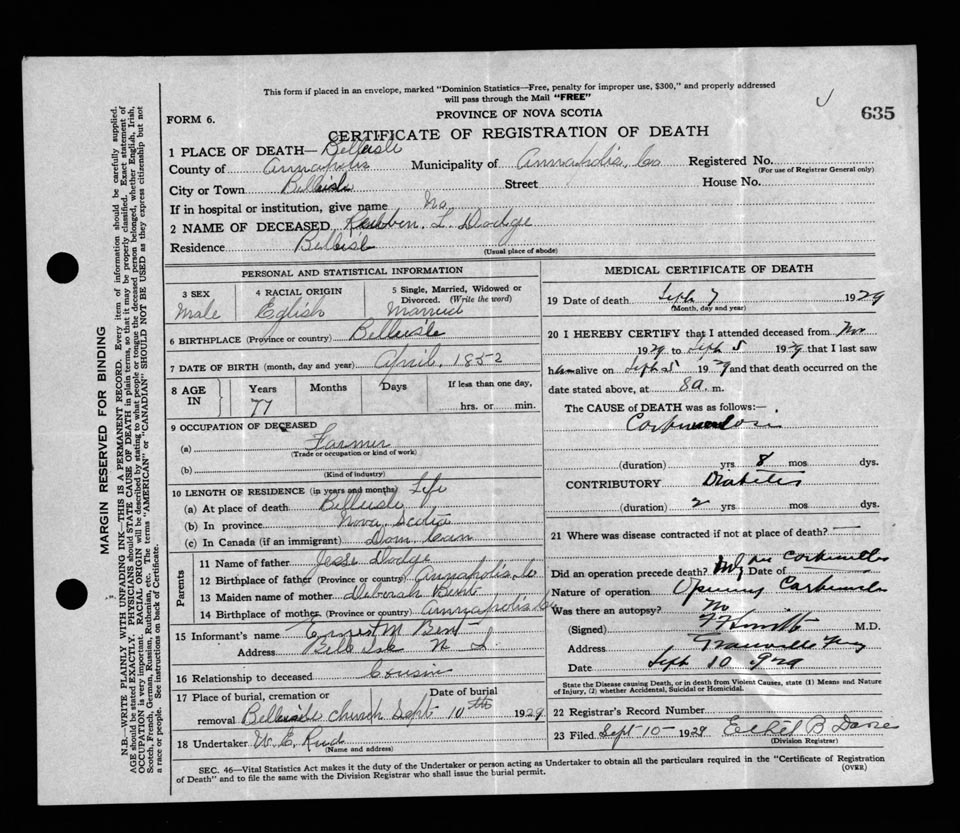 This form if placed in an envelope, marked "Dominion Statistics—Free, penalty for improper use, $300," and properly addressed
will pass through the Mail "FREE"
FORM 6.
PROVINCE OF NOVA SCOTIA
635
CERTIFICATE OF REGISTRATION OF DEATH
1 PLACE OF DEATH— Belleisle
County of Annapolis Municipality of Annapolis, Co Registered No.
(For use of Registrar General only)
City or Town Belleisle Street House No.
If in hospital or institution, give name No
2 NAME OF DECEASED Reuben. L. Dodge
Residence Belleisle
(Usual place of abode)
PERSONAL AND STATISTICAL INFORMATION
3 SEX 4 RACIAL ORIGIN 5 Single, Married, Widowed or
Divorced. (Write the word)
Male Eglish Married
6 BIRTHPLACE (Province or country) Belleisle
7 DATE OF BIRTH (month, day and year) April, 1852
8 AGE IN Years Months Days If less than one day,
77 hrs. or min.
9 OCCUPATION OF DECEASED
(a) Farmer
(Trade or occupation or kind of work)
(b)
(Kind of industry)
10 LENGTH OF RESIDENCE (in years and months) Life
(a) At place of death Belleisle
(b) In province Nova Scotia
(c) In Canada (if an immigrant) Dom. Can
Parents
11 Name of father Jesse Dodge
12 Birthplace of father (Province or country) Annapolis, Co
13 Maiden name of mother Deborah Bent
14 Birthplace of mother (Province or country) Annapolis Co
15 Informant's name Ernest M Bent
Address Belle Isle N S.
16 Relationship to deceased Cousin
17 Place of burial, cremation or Date of burial
removal Belleisle church Sept 10th 1929
18 Undertaker W. E. Rud
(Name and address)
MEDICAL CERTIFICATE OF DEATH
19 Date of death Sept 7 1929
(Month, day and year)
20 I HEREBY CERTIFY that I attended deceased from
1929 to Sept 5 1929 that I last saw
him alive on Sept 5 1929 and that death occurred on the
date stated above, at 8 a. m.
The CAUSE OF DEATH was as follows:—
(duration) yrs 8 mos dys.
CONTRIBUTORY Diabetes
(duration) 2 yrs mos dys.
21 Where was disease contracted if not at place of death? —
Did an operation precede death? Date of
Nature of operation Opening Carbuncle
Was there an autopsy? No
(Signed) M.D.
Address Granville Ferry
Date Sept 10 1929
State the Disease causing Death, or in Death from Violent Causes, state (1) Means and Nature
of Injury, (2) whether Accidental, Suicidal or Homicidal.
22 Registrar's Record Number
23 Filed Sept 10 - 1929 Ethel B
(Division Registrar)
SEC. 46—Vital Statistics Act makes it the duty of the Undertaker or person acting as Undertaker to obtain all the particulars required in the "Certificate of Registration
of Death" and to file the same with the Division Registrar who shall issue the burial permit.
(OVER)
MARGIN RESERVED FOR BINDING
N.B.—WRITE PLAINLY WITH UNFADING INK—THIS IS A PERMANENT RECORD. Every item of information should be carefully supplied.
AGE should be stated EXACTLY. PHYSICIANS should STATE CAUSE OF DEATH in plain terms, so that it may be properly classified. Exact statement of
OCCUPATION is very important. RACIAL ORIGIN will be described by stating to what people or tongue the deceased person belonged, whether English, Irish,
Scotch, French, German, Russian, Ruthenian, etc. The terms "AMERICAN" or "CANADIAN" SHOULD NOT BE USED as they express citizenship but not
a race or people. See instructions on back of Certificate.